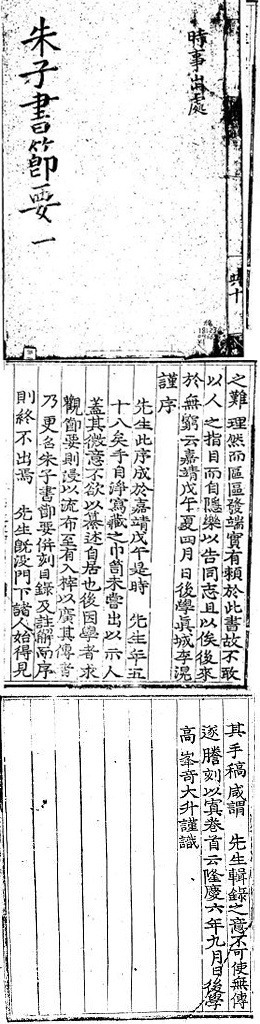 朱子書節要 一
時事出處
共十
之難理然而區區發端實有賴於此書故不敢
以人之指目而自隱樂以告同志且以俟後來
於無窮云嘉靖戊午夏四月日後學眞城李滉
謹序
先生此序成於嘉靖戊午是時 先生年五
十八矣手自淨寫藏之巾笥未嘗出以示人
蓋其微意不欲以纂述自居也後因學者求
觀節要則漫以流布至有入梓以廣其傳者
乃更名朱子書節要倂刻目錄及註解而序
則終不出焉 先生旣沒門下諸人始得見
其手稿咸謂 先生輯錄之意不可使無傳
遂謄刻以寘卷首云隆慶六年九月日後學
高峯奇大升謹識